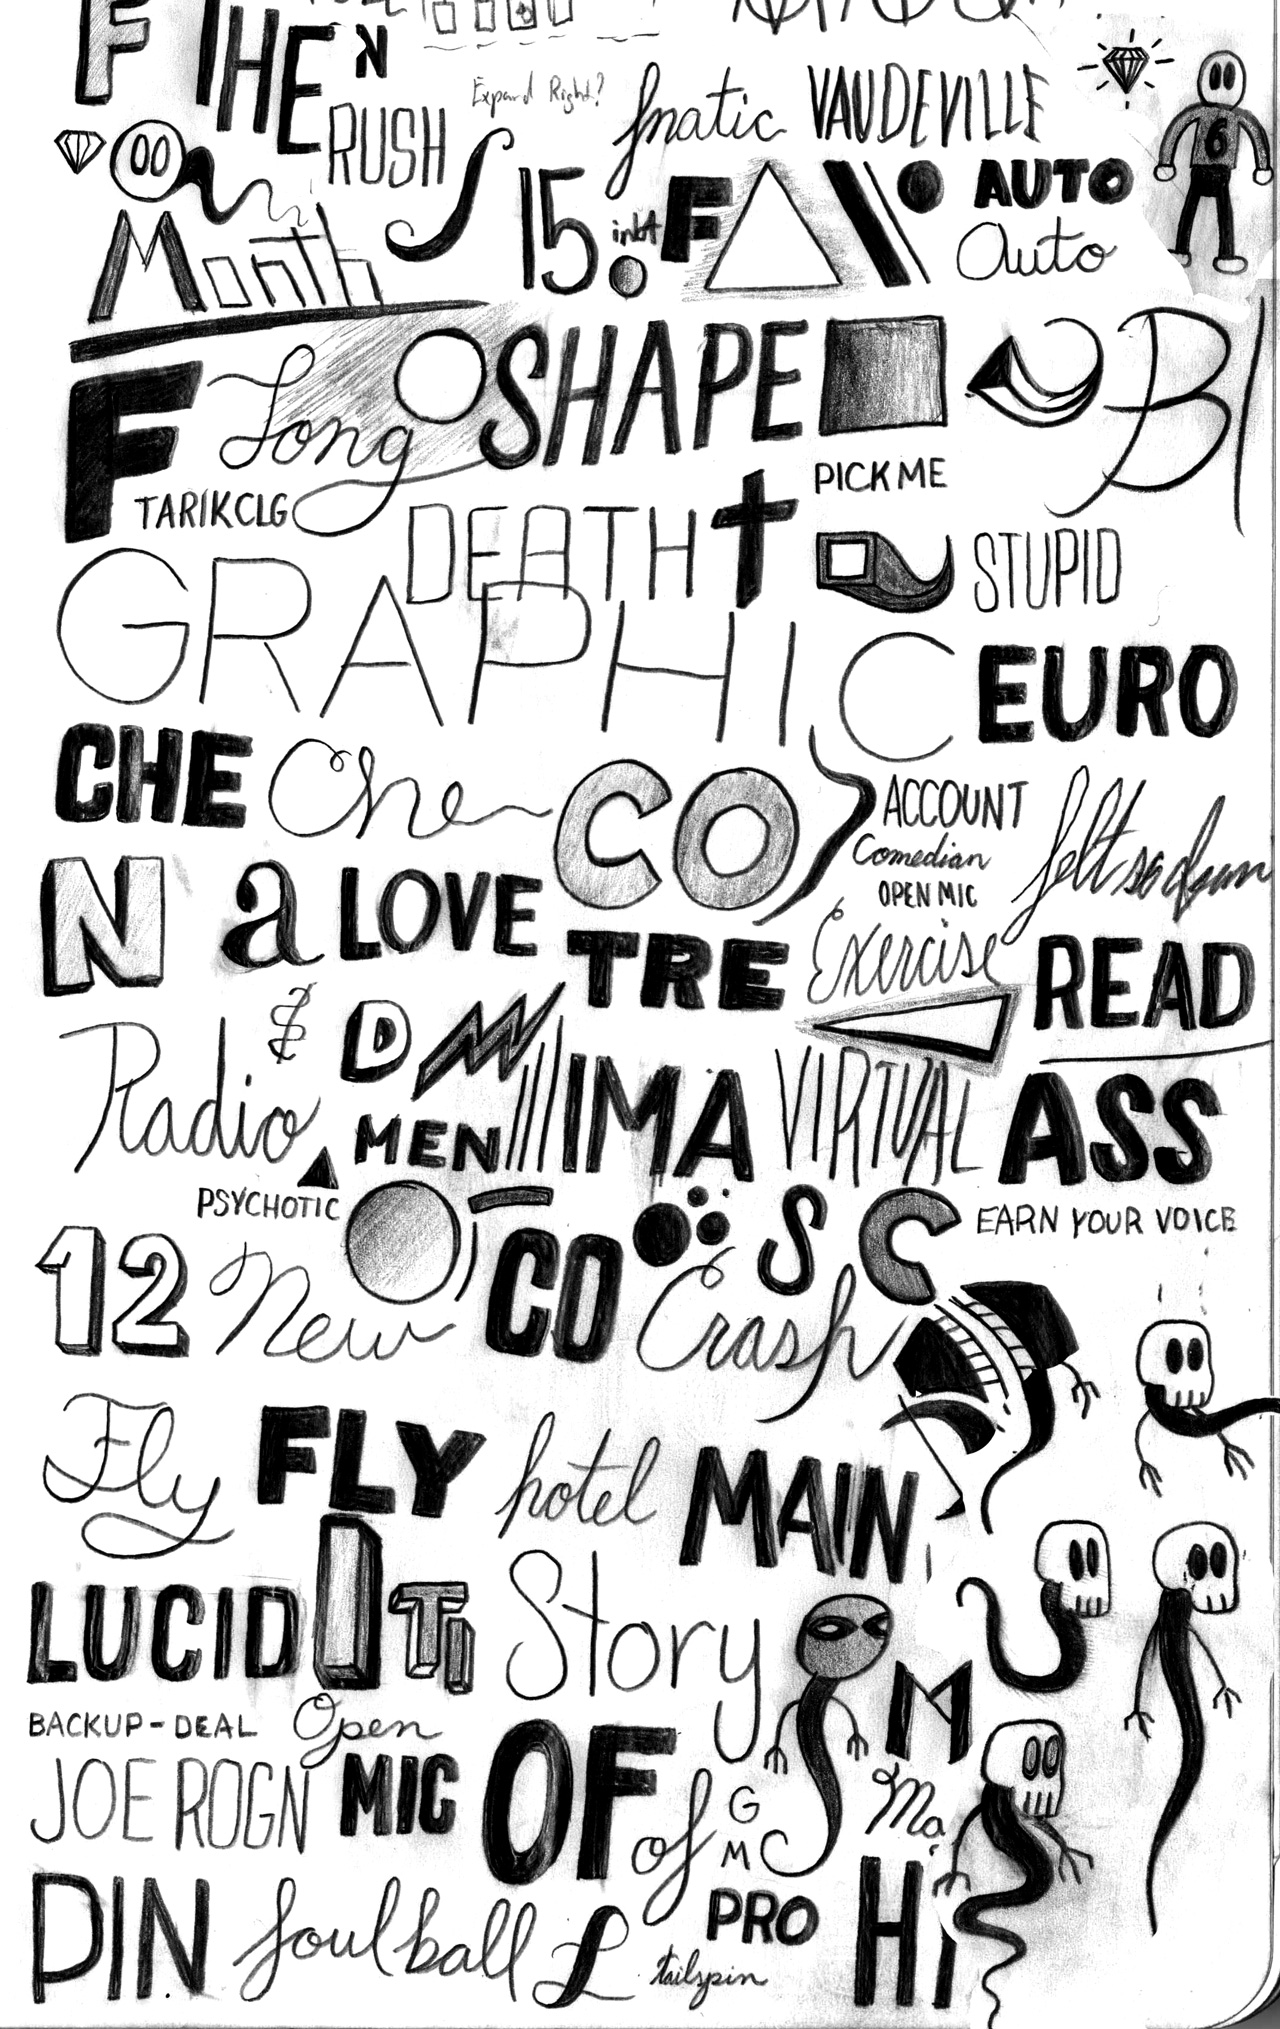 F THE N
RUSH
Expand Right?
fnatic VAUDEVILLE
6
15. F
AUTO
Auto
Month
F Long SHAPE
BI
TARIKCLG
PICK ME
DEATH
STUPID
GRAPHIC
EURO
CHE Che CO
ACCOUNT
Comedian
OPEN MIC
N a LOVE
TRE
Exercise
READ
Radio
D
MEN IMA VIRTUAL ASS
PSYCHOTIC
S C
EARN YOUR VOICE
12 New CO Crash
Fly FLY hotel MAIN
LUCID
Story
M
BACKUP - DEAL
Open
JOE ROGN MIC OF of
G
MC
Ma
PIN foulball L
PRO
tailspin
HI